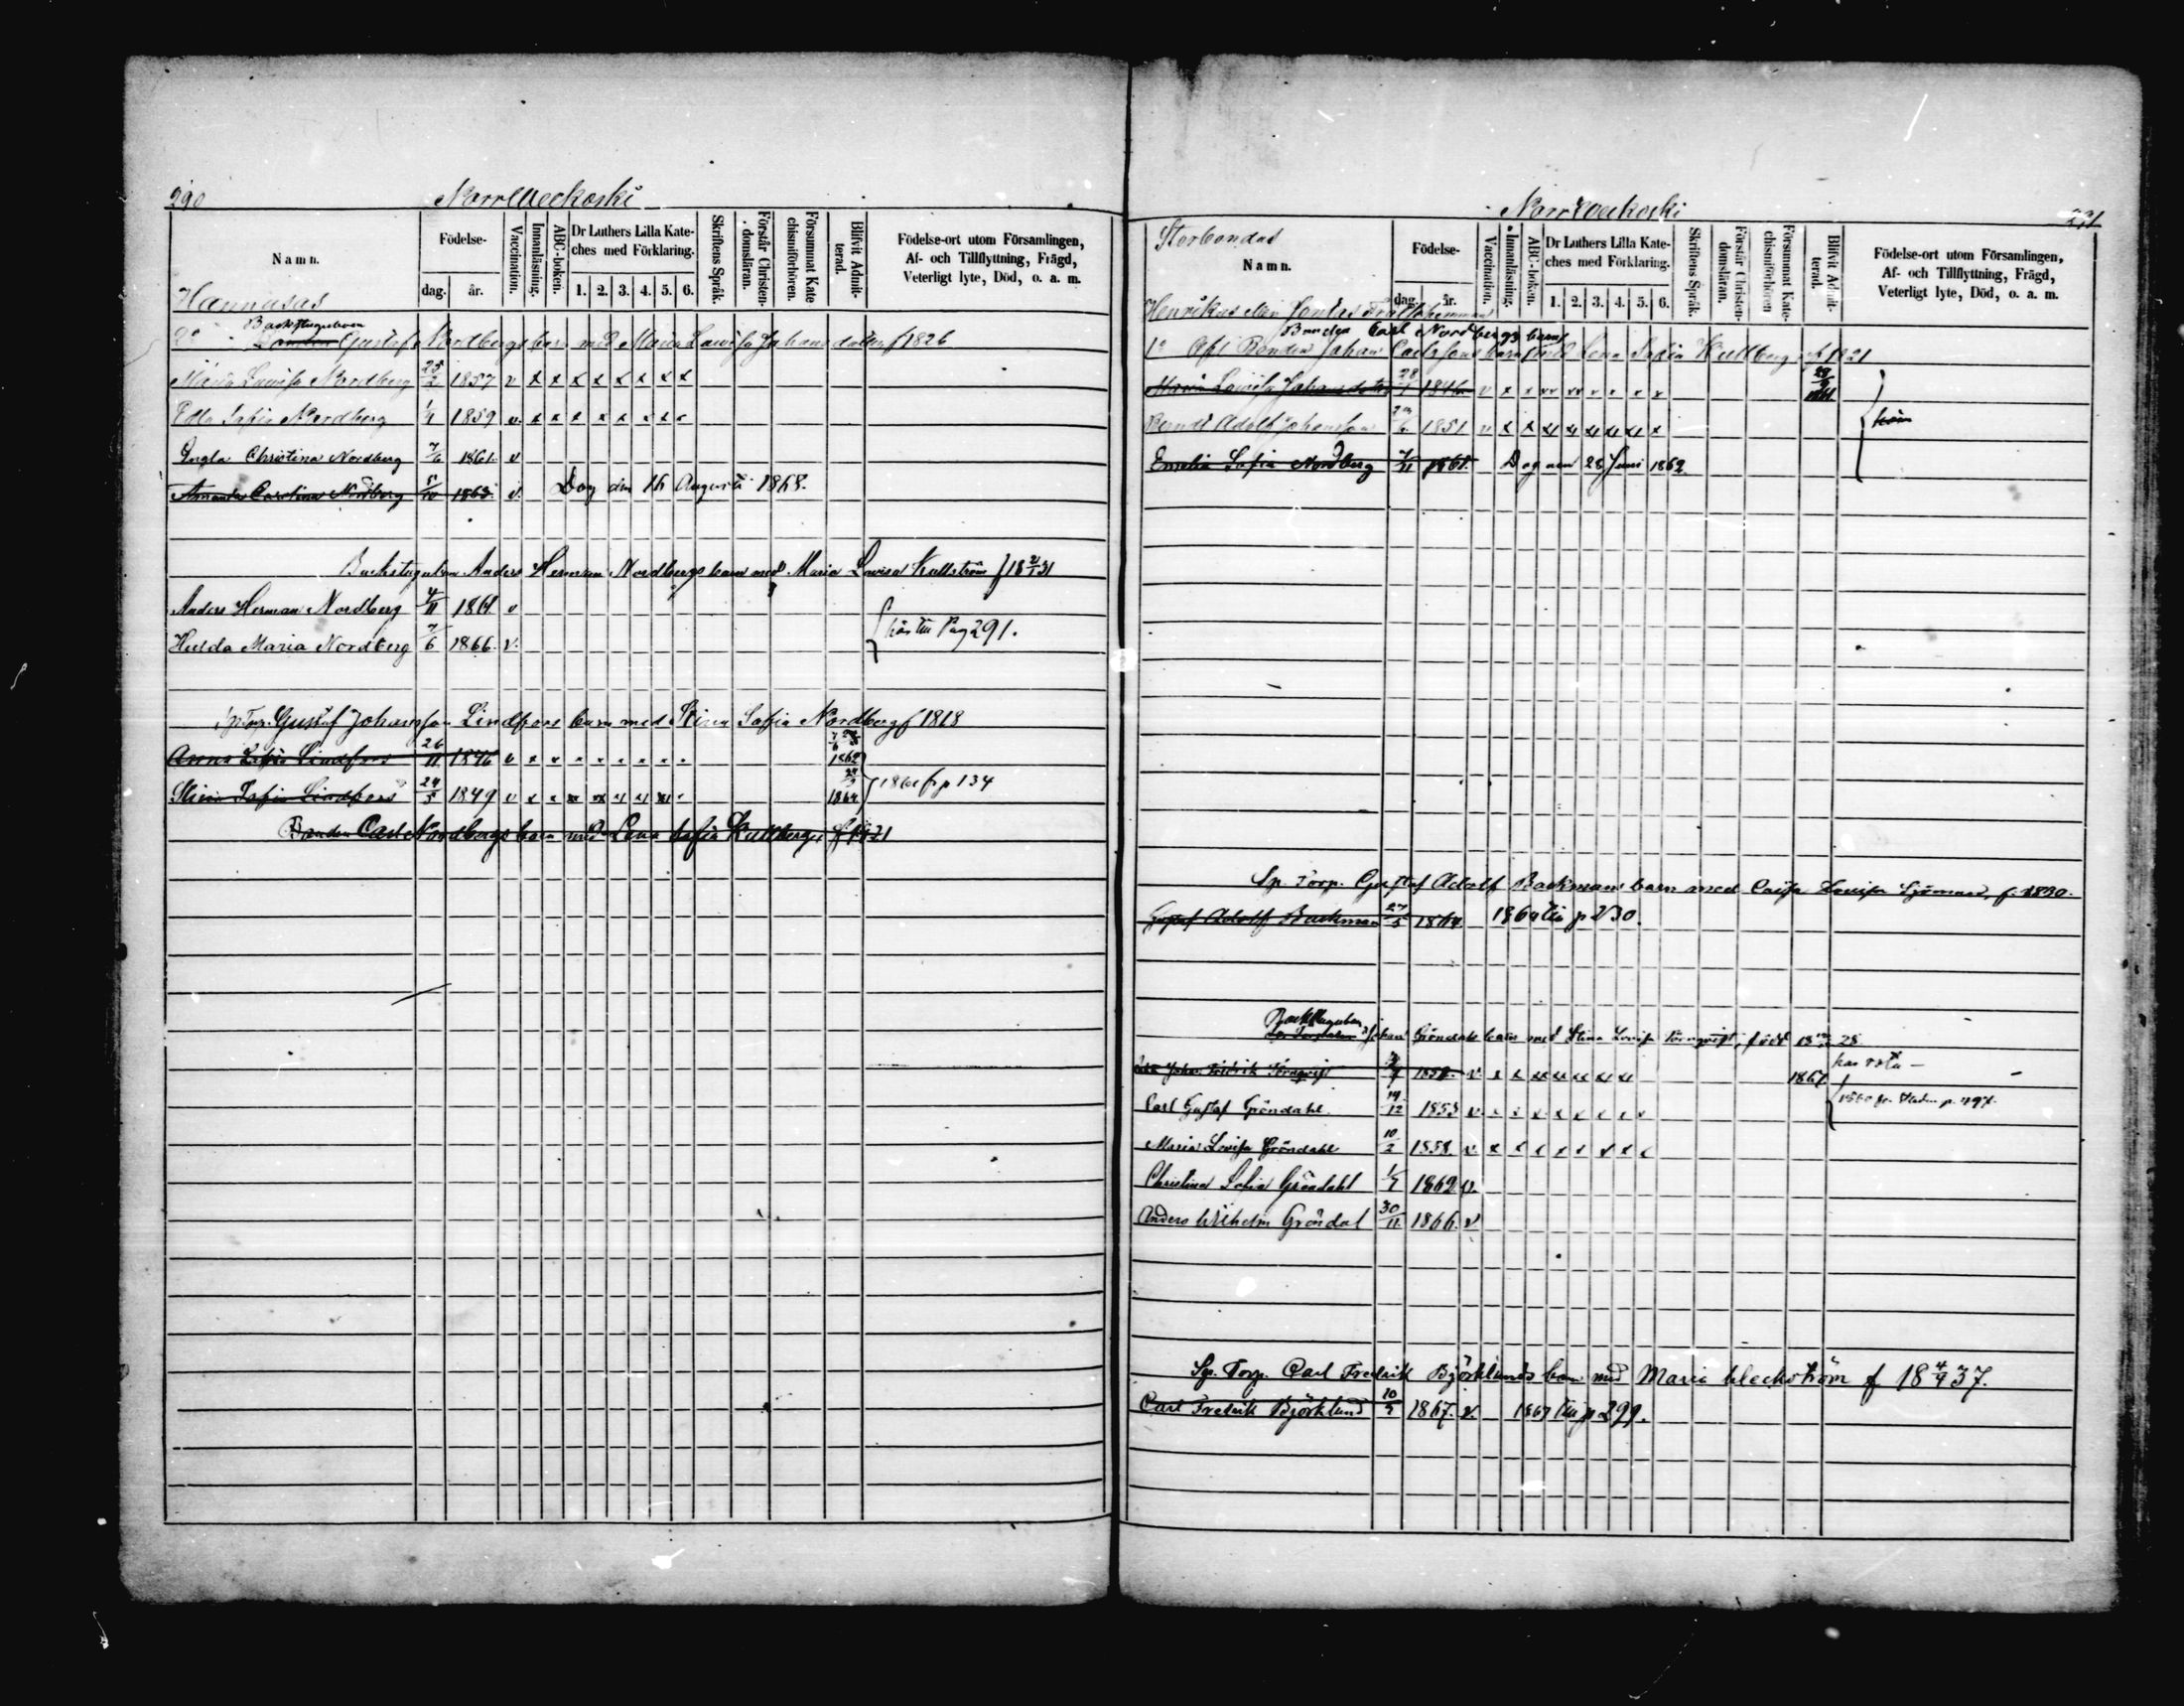 290
Norrweckoski
Namn.
Födelse-
dag.
år.
Vaccination.
Innanläsning.
ABC-boken.
Dr Luthers Lilla Kate-
ches med Förklaring.
1. 2. 3. 4. 5. 6.
Skriftens Språk.
Förstår Christen-
domsläran.
Försummat Kate
chismiförhören.
Blifvit Admit-
terad.
Födelse-ort utom Församlingen,
Af- och Tillflyttning, Frägd,
Veterligt lyte, Död, o. a. m.
Hannusas
Backstugubon
Gustaf Nordbergs barn med Maria Lovisa Johansdotter f 1826
Maria Lovisa Nordberg 25/2 1857 v x x x x x x x x
Edla Sofia Nordberg 1/4 1859 v. x x x x x x x x
Ingla Christina Nordberg 7/6 1861. v
Amanda Carolina Nordberg 5/10 1863 v. Dog den 16 Augusti 1868.
Backstugubon Anders Herman Nordbergs barn med Maria Lovisa Kullström f 18 2/1 31
Anders Herman Nordberg 4/11 1861 v
Hulda Maria Nordberg 7/6 1866. v.
hör till Pag 291.
Gustaf Johansson Lindfors barn med Stina Sofia Nordberg f 1818
Anna Sofia Lindfors 26/11 1846 v x x x x x x x x 1862
Stina Sofia Lindfors 24/5 1849 v x x x x x x x x 1864
fr p 134
Bonden Carl Nordbergs barn med Lena Sofia Kullberg f 1821
291
Norrweckoski
Storbondas
Namn.
Födelse-
dag.
år.
Vaccination.
Innanläsning.
ABC-boken.
Dr Luthers Lilla Kate-
ches med Förklaring.
1. 2. 3. 4. 5. 6.
Skriftens Språk.
Förstår Christen-
domsläran.
Försummat Kate-
chismiförhören
Blifvit Admit-
terad.
Födelse-ort utom Församlingen,
Af- och Tillflyttning, Frägd,
Veterligt lyte, Död, o. a. m.
Henrikus
Bonden Carl Nordbergs barn
Bonden Johan Carlssons barn med Lena Sofia Kullberg f 1821
Maria Lovisa Johansdotter 28/1 1846 v
Bernt Adolf Johansson 1851 v
Emelia Sofia Nordberg 7/11 1861. Dog den 28 Juni 1862.
Sp. Torp. Gustaf Adolf Backmans barn med Caisa Lovisa Sjöman, f. 1830.
Gustaf Adolf Backman 27/5 1864 1864 till p 230.
Backstugubon
Johan Gröndals barn med Stina Lovisa Törnqvist, född
Johan Fridrik Törnqvist 1867
Carl Gustaf Gröndahl 14/12 1853 v
Maria Lovisa Gröndahl 10/2 1858. v. x
Christina Sofia Gröndahl 1862 v.
Anders Wilhelm Gröndal 30/11 1866. v
Sp. Torp. Carl Fredrik Björklunds barn med Maria Weckström f 18 4/9 37.
Carl Fredrik Björklund 10/5 1867. v. 1867 till p 299.